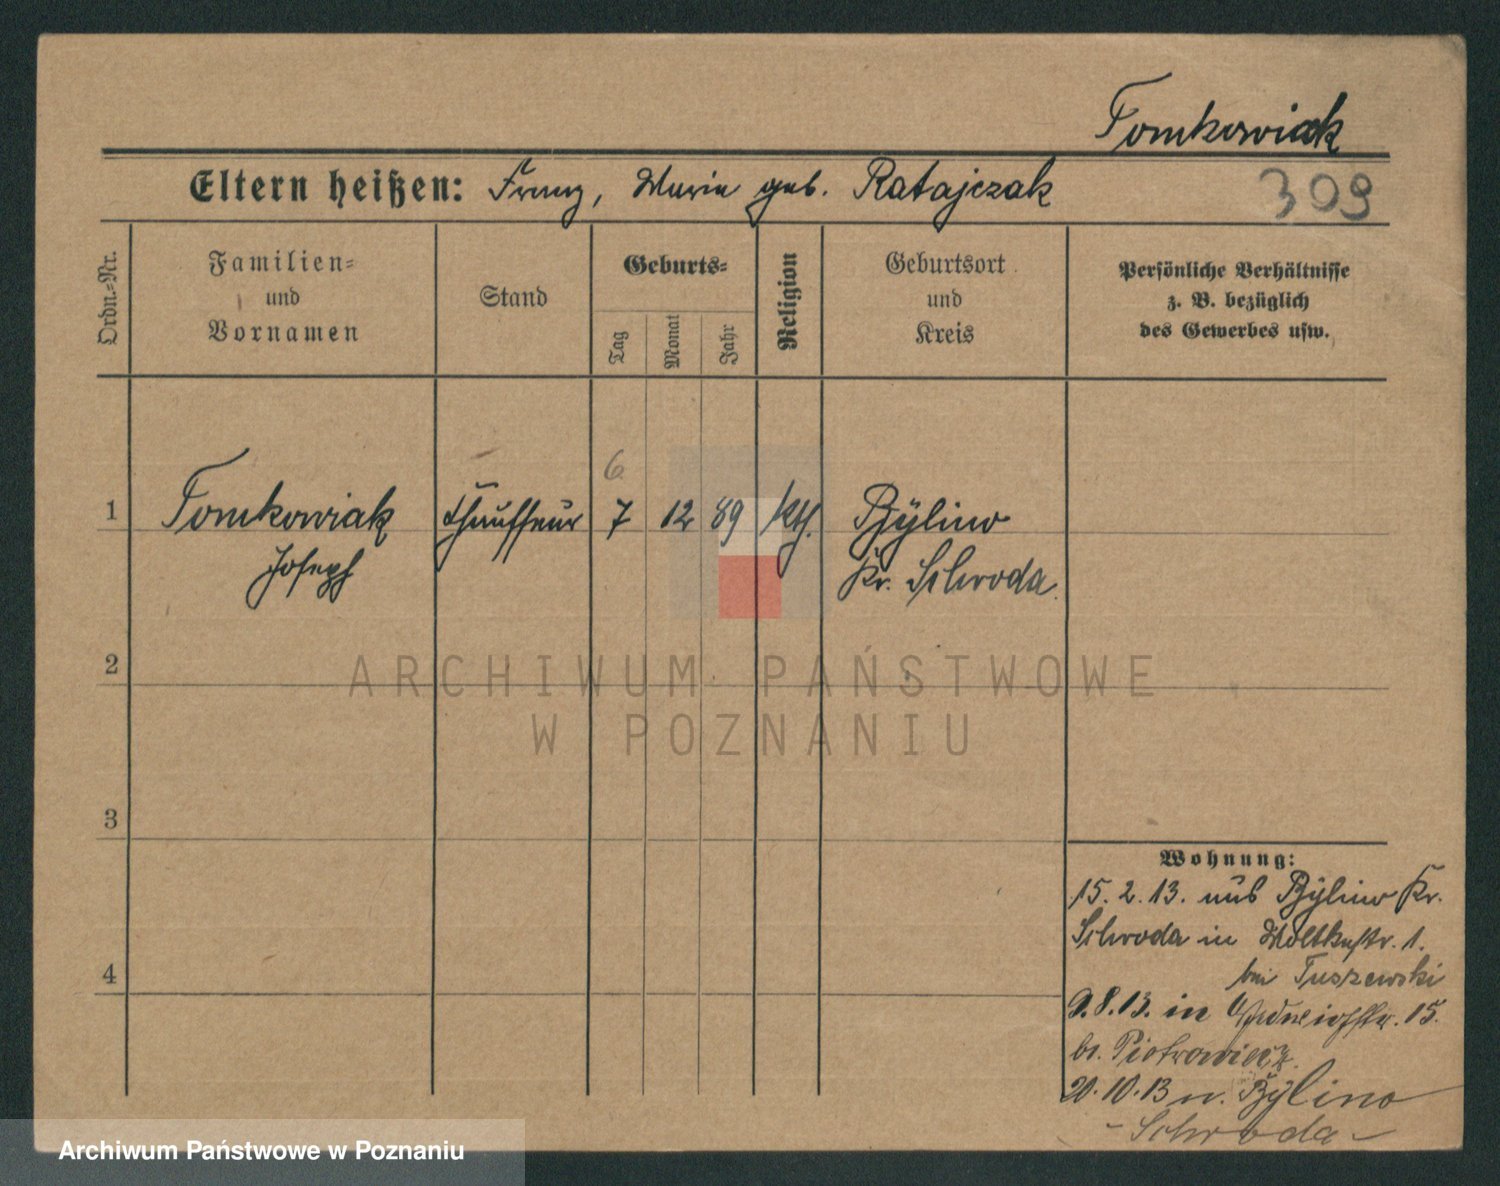 Tomkowiak
Eltern heißen: Franz, Marie geb. Ratajczak
309
Ordn.-Nr.
Familien-
und
Vornamen
Stand
Geburts-
Tag
Monat
Jahr
Religion
Geburtsort
und
Kreis
Persönliche Verhältnisse
z. B. bezüglich
des Gewerbes usw.
6
1 Tomkowiak Chauffeur 7 12 89 kth. Bÿlino
Joseph Kr. Schroda
2
ARCHIWUM PAŃSTWOWE
W POZNANIU
3
4
Wohnung:
15. 2. 13. aus Bÿlino Kr.
Schroda in Moltkestr. 1.
bei Tuszewski
9. 8. 13. in 15.
b. Piotrowicz
20. 10. 13 n. Bÿlino
- Schroda -
Archiwum Państwowe w Poznaniu